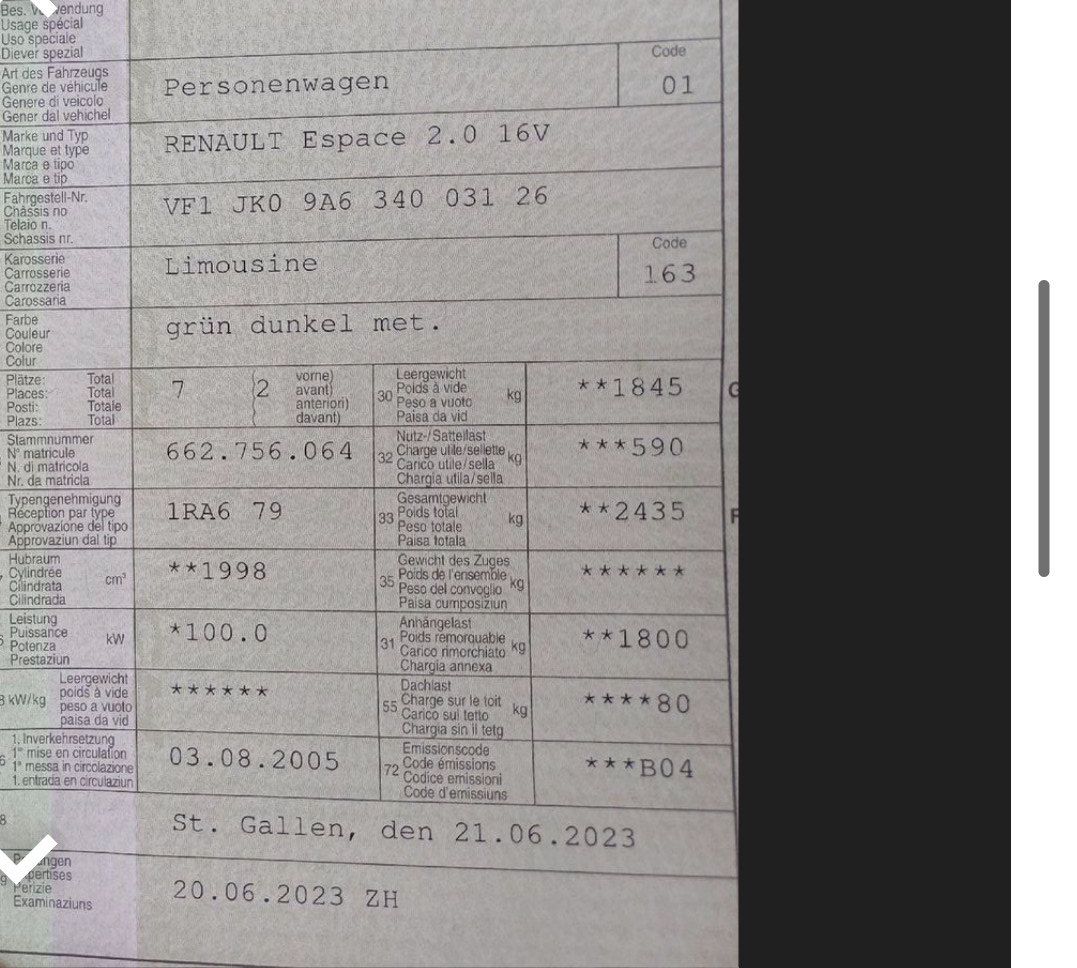 Bes. V wendung
Usage spécial
Uso speciale
Diever spezial
Art des Fahrzeugs
Genre de véhicule
Genere di veicolo
Gener dal vehichel
Personenwagen
Code
01
Marke und Typ
Marque et type
Marca e tipo
Marca e tip
RENAULT Espace 2.0 16V
Fahrgestell-Nr.
Châssis no
Telaio n.
Schassis nr.
VF1 JK0 9A6 340 031 26
Karosserie
Carrosserie
Carrozzeria
Carossaria
Limousine
Code
163
Farbe
Couleur
Colore
Colur
grün dunkel met.
Plätze: Total
Places: Total
Posti: Totale
Plazs: Total
7 (2 vorne)
avant)
anteriori)
davant)
30 Leergewicht
Poids à vide
Peso a vuoto
Paisa da vid
kg
**1845
G
Stammnummer
N° matricule
N. di matricola
Nr. da matricla
662.756.064
32 Nutz-/Sattellast
Charge utile/sellette
Carico utile/sella
Chargia utila/sella
kg
***590
Typengenehmigung
Réception par type
Approvazione del tipo
Approvaziun dal tip
1RA6 79
33 Gesamtgewicht
Poids total
Peso totale
Paisa totala
kg
**2435
F
Hubraum
Cylindrée
Cilindrata
Cilindrada
cm³
**1998
35 Gewicht des Zuges
Poids de l'ensemble
Peso del convoglio
Paisa cumposiziun
kg
******
Leistung
Puissance
Potenza
Prestaziun
kW
*100.0
31 Anhängelast
Poids remorquable
Carico rimorchiato
Chargia annexa
kg
**1800
kW/kg
Leergewicht
poids à vide
peso a vuoto
paisa da vid
******
55 Dachlast
Charge sur le toit
Carico sul tetto
Chargia sin il tetg
kg
****80
6 1. Inverkehrsetzung
1re mise en circulation
1a messa in circolazione
1. entrada en circulaziun
03.08.2005
72 Emissionscode
Code émissions
Codice emissioni
Code d'emissiuns
***B04
8
St. Gallen, den 21.06.2023
9
Perizie
Examinaziuns
20.06.2023 ZH